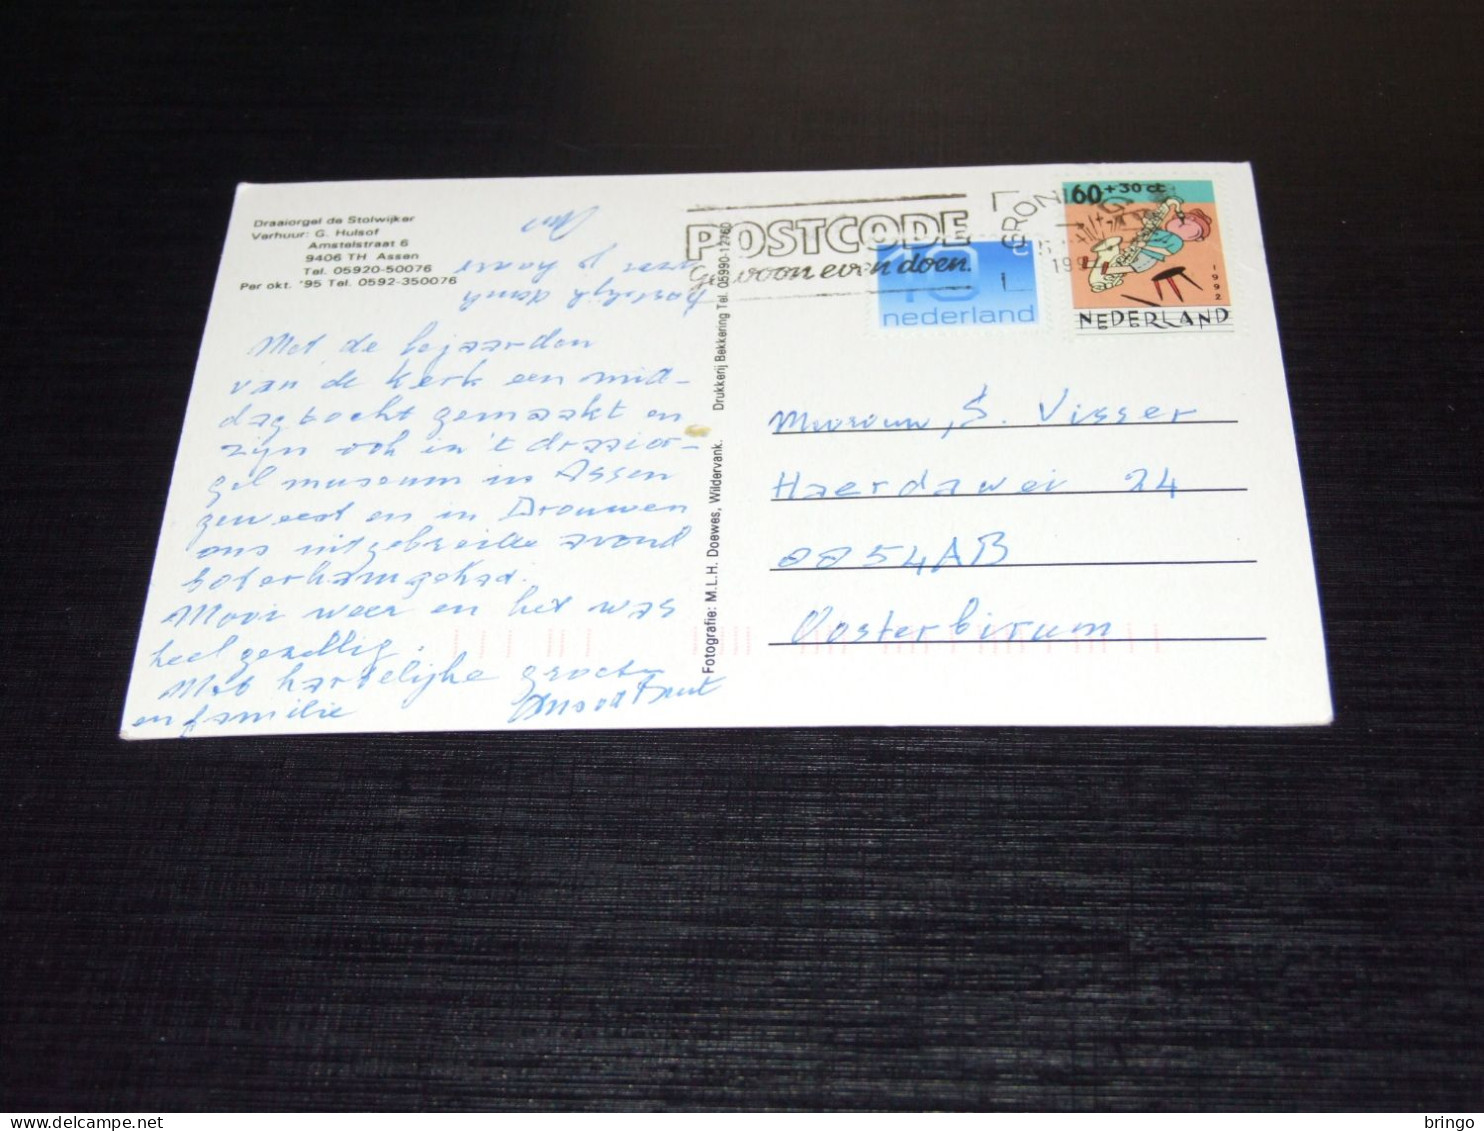 Draaiorgel de Stolwijker
Verhuur: G. Hulsof
Amstelstraat 6
9406 TH Assen
Tel. 05920-50076
Per okt. '95 Tel. 0592-350076
hartelijk dank
voor je kaart
Met de bejaarden
van de kerk een mid-
dagtocht gemaakt en
zijn ook in 't draaior-
gel museum in Assen
geweest en in Drouwen
ons uitgebreide avond
boterham gehad.
Mooi weer en het was
heel gezellig.
Met hartelijke groet
en familie
Fotografie: M.L.H. Doewes, Wildervank. Drukkerij Bekkering Tel. 05990-12760
POSTCODE
Gewoon even doen.
GRONI
199
10
nederland
60 + 30 ct
1992
NEDERLAND
Mevrouw, S. Visser
Haerdawei 24
8854AB
Oosterbierum
bringo